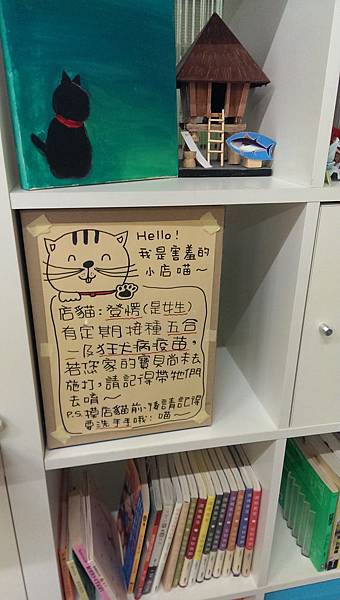 Hello!
我是害羞的
小店喵～
店貓：登愣(是女生)
有定期接種五合
一及狂犬病疫苗，
若您家的寶貝尚未去
施打，請記得帶牠們
去唷～
P.S. 摸店貓前、後請記得
要洗手手哦：喵～